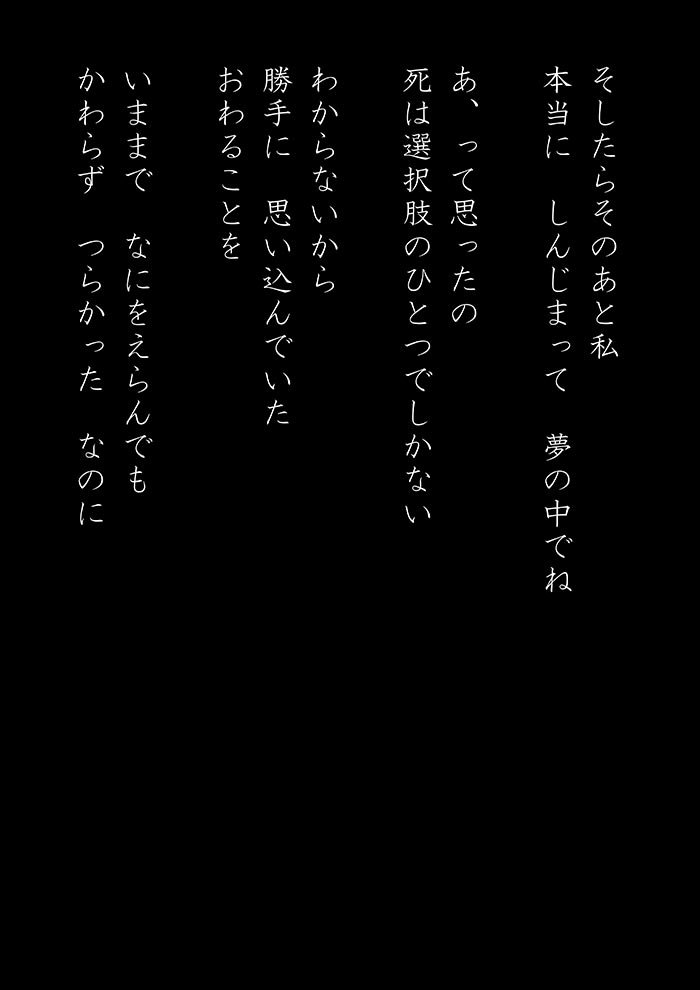 そしたらそのあと私
本当に　しんじまって　夢の中でね
あ、って思ったの
死は選択肢のひとつでしかない
わからないから
勝手に　思い込んでいた
おわることを
いままで　なにをえらんでも
かわらず　つらかった　なのに